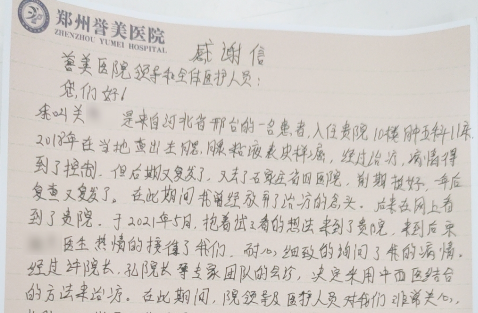 郑州誉美医院
ZHENZHOU YUMEI HOSPITAL
感谢信
誉美医院领导和全体医护人员:
您们好!
我叫关 是来自河北省邢台的一名患者,入住贵院10楼肿五科11床,
2018年在当地查出生腺 腺粘液表皮样癌,经过治疗,病情得
到了控制,但后期又复发了,又去了石家庄省四医院,前期挺好,一年后
复查又复发了。在此期间我曾经放弃了治疗的念头。后来在网上看
到了贵院。于2021年5月,抱着试试看的想法来到了贵院,来到后
医生热情的接待了我们,耐心细致的询问了我的病情。
经过许院长、孔院长等专家团队的会诊,决定采用中西医结合
的方法来治疗。在此期间,院领导及医护人员对我们非常关心,